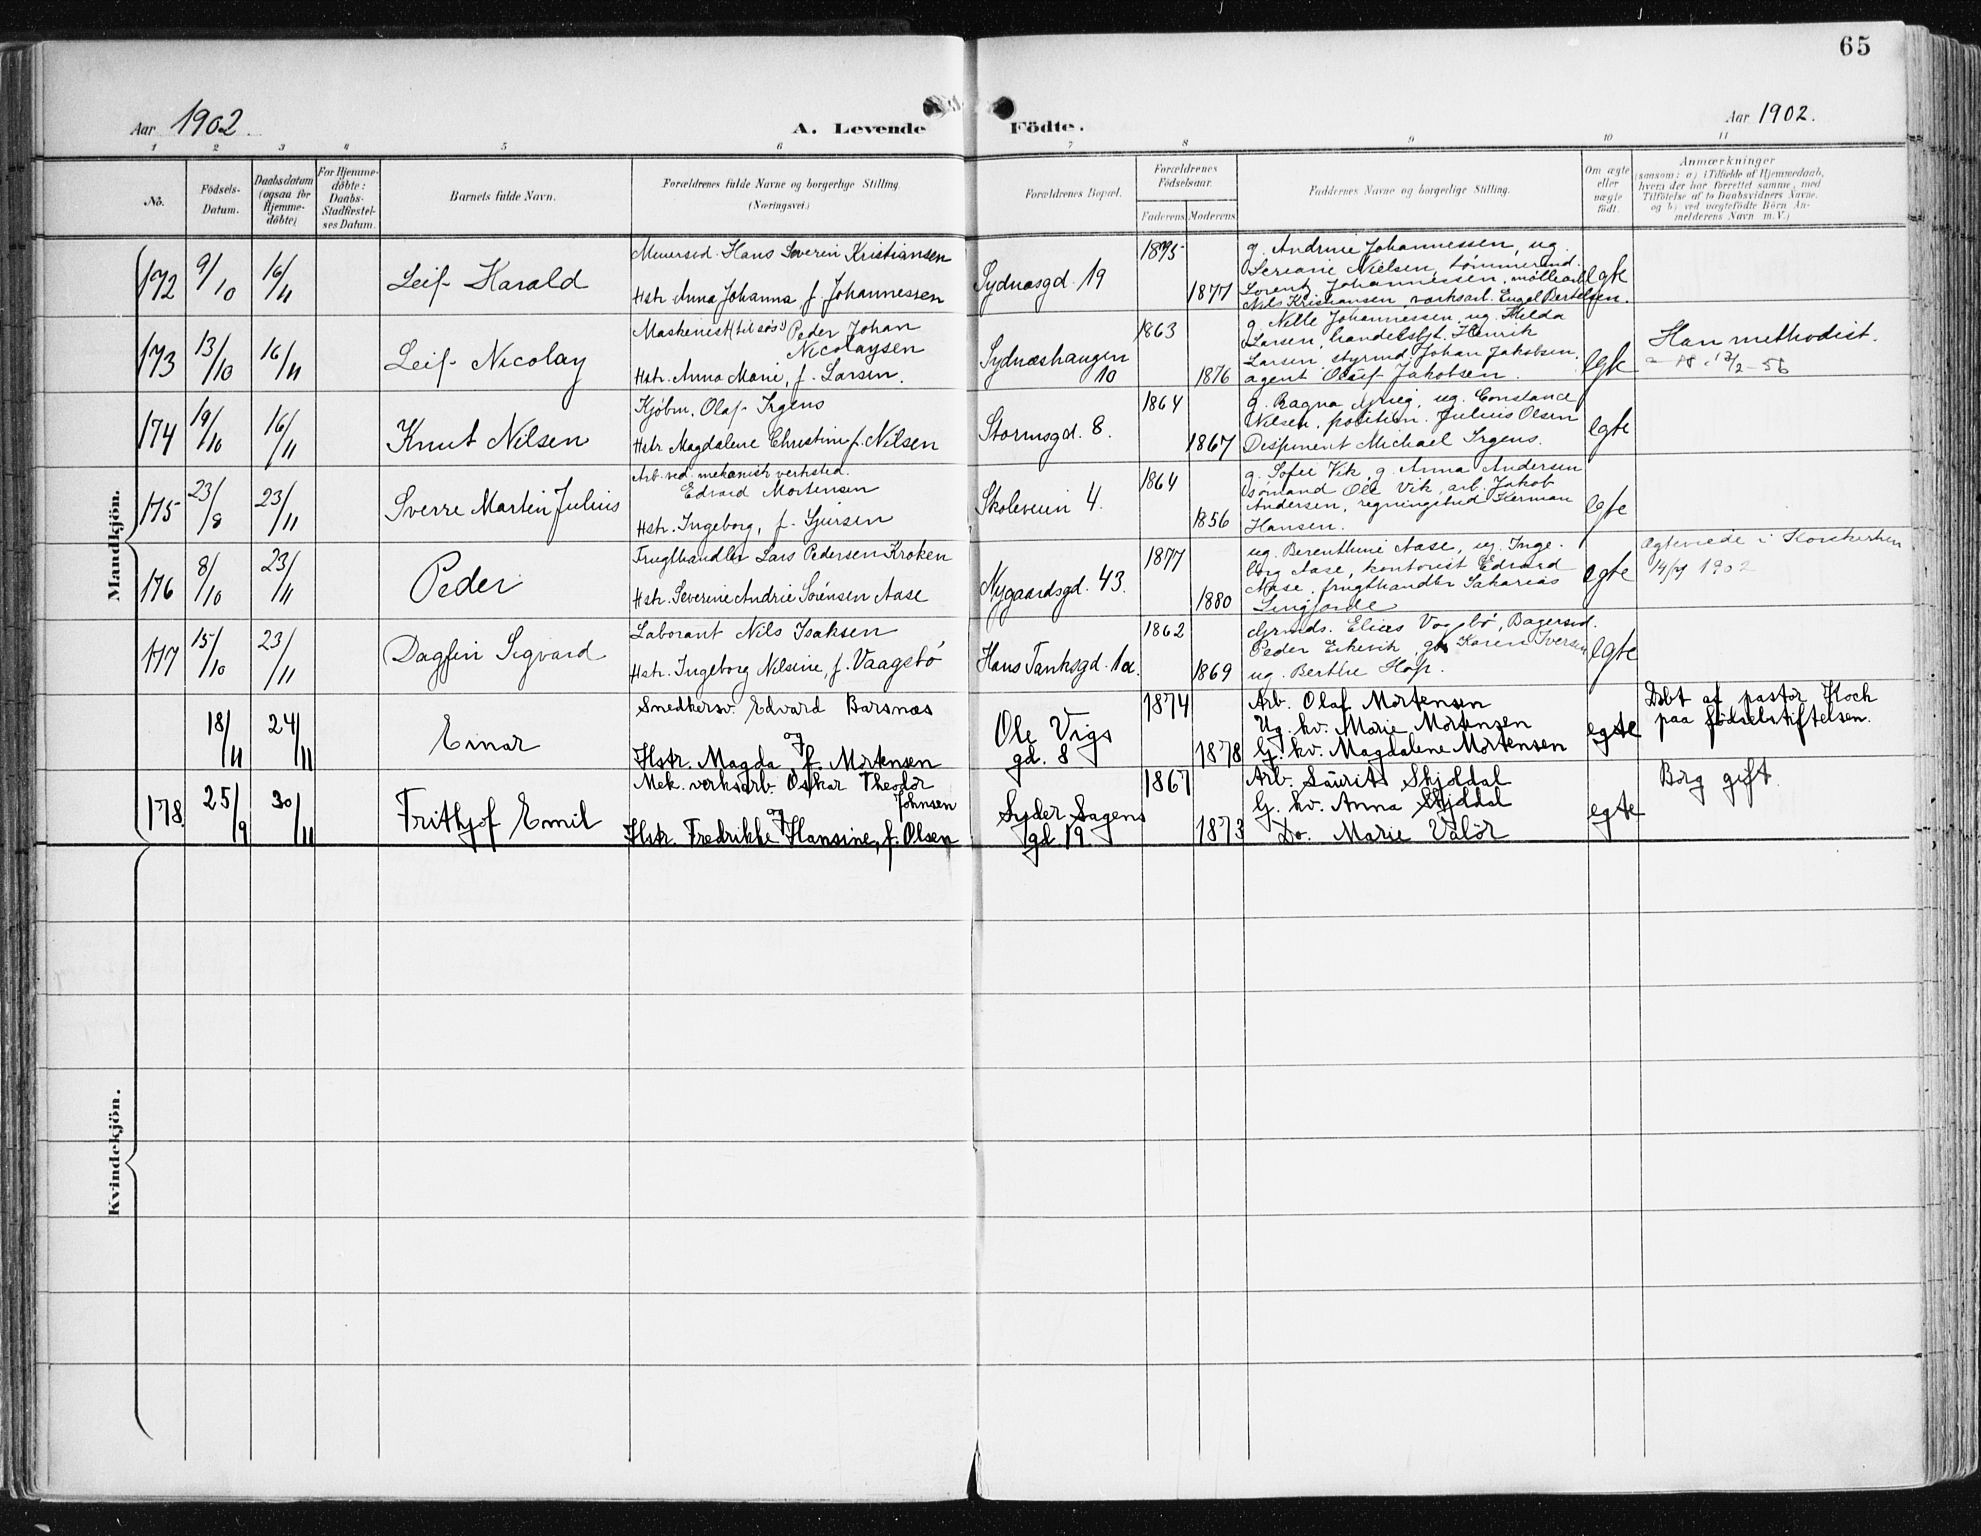 65
Aar 1902.
A. Levende Födte.
Aar 1902.
1 2 3 4 5 6 7 8 9 10 11
No.
Födsels-Datum.
Daabsdatum (ogsaa for Hjemme-döbte)
For Hjemme-döbte: Daabs-Stadfæstel-ses Datum.
Barnets fulde Navn.
Forældrenes fulde Navne og borgerlige Stilling. (Næringsvei.)
Forældrenes Bopæl.
Forældrenes Födselsaar.
Faderens Moderens
Faddernes Navne og borgerlige Stilling.
Om ægte eller uægte födt.
Anmærkninger
(saasom: a) i Tilfælde af Hjemmedaab,
hvem der har forrettet samme, med
Tilföielse af to Daabsvidners Navne,
og b) ved uægtefödte Börn An-
melderens Navn m. V.)
Mandkjön.
172 9/10 16/11 Leif Harald
Murersvd. Hans Severin Kristiansen
Hstr. Anna Johanna, f. Johannessen
Sydnæsgd. 19
1875
1877
g. Andrine Johannessen, ug.
Seriane Nielsen, tømmermd.
Lorentz Johannessen, møllearb.
Nils Kristiansen, værksarb. Engel Bertelsen.
egte
173 13/10 16/11 Leif Nicolay
Maskinist (tilsøs) Peder Johan
Nicolaysen
Hstr. Anna Marie, f. Larsen.
Sydnæshaugen
10
1863
1876
g. Nille Johannessen, ug. Hilda
Larsen, handelsbst. Henrik
Larsen styrmd. Johan Jakobsen,
agent Oluf Jakobsen.
egte
Han methodist.
174 19/10 16/11 Knut Nilsen
Kjøbm. Olaf Irgens
Hstr. Magdalene Christine f. Nilsen
Stormsgd. 8.
1864
1867
g. Ragna Grieg, ug. Constance
Nilsen, politim. Julius Olsen
Disponent Michael Irgens.
egte
175 23/8 23/11 Sverre Martin Julius
Arb. ved mekanisk verksted.
Edvard Mortensen
Hstr. Ingeborg, f. Sjursen
Skoleveien 4.
1864
1856
g. Sofie Vik, g. Anna Andersen
sømand Ole Vik, arb. Jakob
Andersen, regningsbud Herman
Hansen.
egte
176 8/10 23/11 Peder
Frugthandler Lars Pedersen Kroken
Hstr. Severine Andrie Sørensen Aase
Nygaardsgd. 43.
1877
1880
ug. Berenthine Aase, ug. Inge-
borg Aase, kontorist Edvard
Aase, frugthandler Sakarias
Lingjorde
egte
Ægteviede i Korskirken
1902
177 15/10 23/11 Dagfin Sigvard
Laborant Nils Isaksen
Hstr. Ingeborg Nilsine, f. Vaagsbø
Hans Tanksgd. 1a.
1862
1869
Grmds. Elias Vaagsbø, Bagersvd.
Peder Erkevik, g. Karen Iversen
ug. Berthe Hop.
egte
18/11 24/11 Einar
Snedkersv. Edvard Barsnæs
og
Hstr. Magda f. Mortensen
Ole Vigs
gd. 8
1874
1878
Arb. Olaf Mortensen
Ug. kv. Marie Mortensen
G. kv. Magdalene Mortensen
egte
Døbt af pastor Koch
paa fødselsstiftelsen.
178. 25/9 30/11 Frithjof Emil
Mek. verksarb. Oskar Theodor
Johnsen
og
Hstr. Fredrikke Hansine, f. Olsen
Syder Sagens
gd. 19.
1867
1873
Arb. Laurits Skjoldal
G. kv. Anna Skjoldal
Do. Marie Valör
egte
Borg gift.
Kvindekjön.